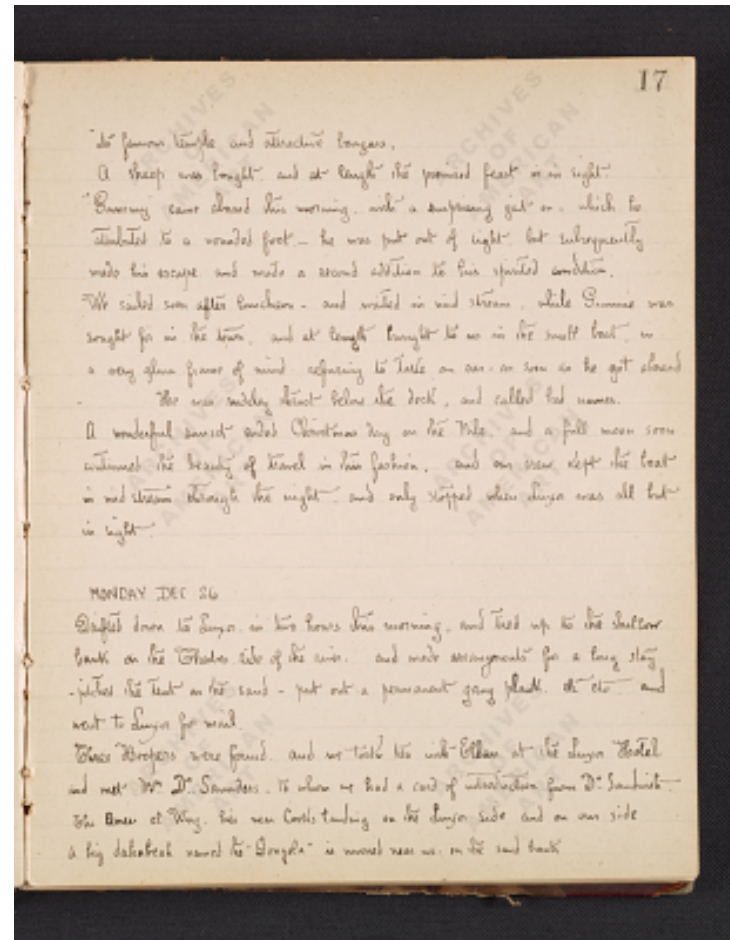 17
its famous temple and attractive bazaars.
A sheep was bought, and at length the promised feast is in sight.
came aboard this morning, with a surprising gait on, which he
attributed to a wounded foot — he was put out of sight but subsequently
made his escape, and made a second addition to his spirited condition.
We sailed soon after luncheon - and waited in mid stream, while was
sought for in the town, and at length brought to us in the small boat, in
a very glum frame of mind refusing to take an oar - as soon as he got aboard
He was below the deck, and called bad names.
A wonderful sunset ended Christmas day on the Nile, and a full moon soon
continued the beauty of travel in this fashion, and our crew kept the boat
in mid stream through the night, and only stopped when Luxor was all but
in sight.
MONDAY DEC 26
Drifted down to Luxor in two hours this morning, and tied up to the shallow
bank on the Thebes side of the river, and made arrangements for a long stay
- pitched the tent on the sand - put out a permanent gang plank, etc etc and
went to Luxor for mail.
Three were found, and we took tea with at the Luxor Hotel
and met Dr. Saunders, to whom we had a card of introduction from Dr.
landing on the Luxor side and on our side
a big dahabeah named the "Dongola" is moored near us on the sand bank